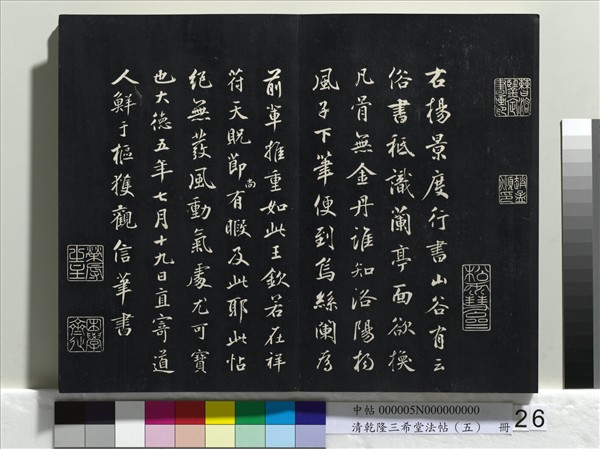 右楊景度行書山谷有云
俗書秪識蘭亭面欲換
凡骨無金丹誰知洛陽楊
風子下筆便到烏絲闌為
前輩推重如此王欽若在祥
符天貺節尚有暇及此耶此帖
絕無蒼風動氣處尤可寶
也大德五年七月十九日直寄道
人鮮于樞獲觀信筆書
中帖 000005N000000000
清乾隆三希堂法帖（五） 冊
26